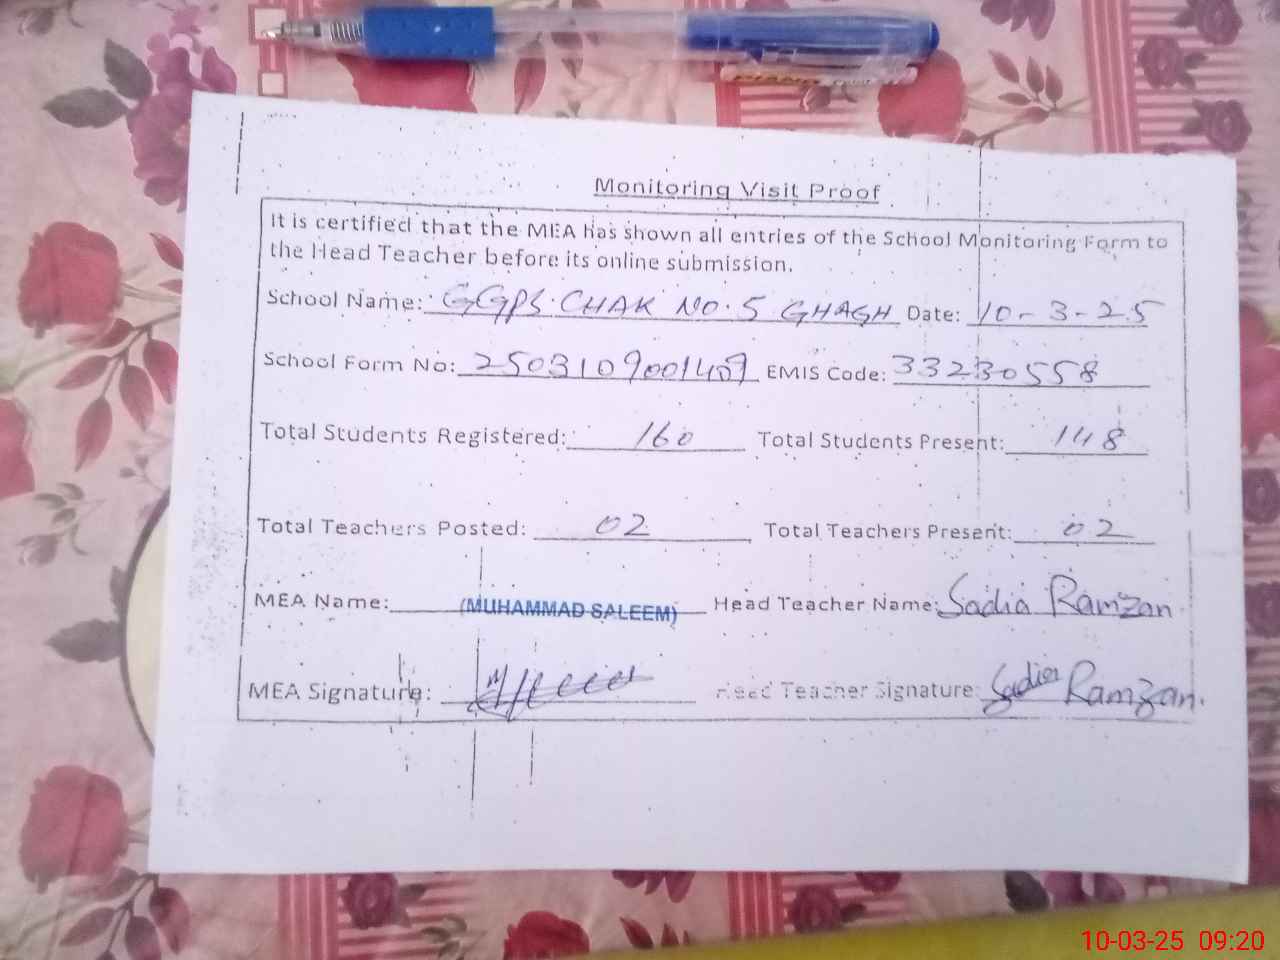 PIANO
Monitoring Visit Proof
It is certified that the MEA has shown all entries of the School Monitoring Form to
the Head Teacher before its online submission.
School Name: GGPS. CHAK NO. 5 GHAGH Date: 10-3-25
School Form No: 2503109001409 EMIS Code: 33230558
Total Students Registered: 160 Total Students Present: 148
Total Teachers Posted: 02 Total Teachers Present: 02
MEA Name: (MUHAMMAD SALEEM) Head Teacher Name: Sadia Ramzan
MEA Signature: Head Teacher Signature: Sadia Ramzan.
10-03-25 09:20